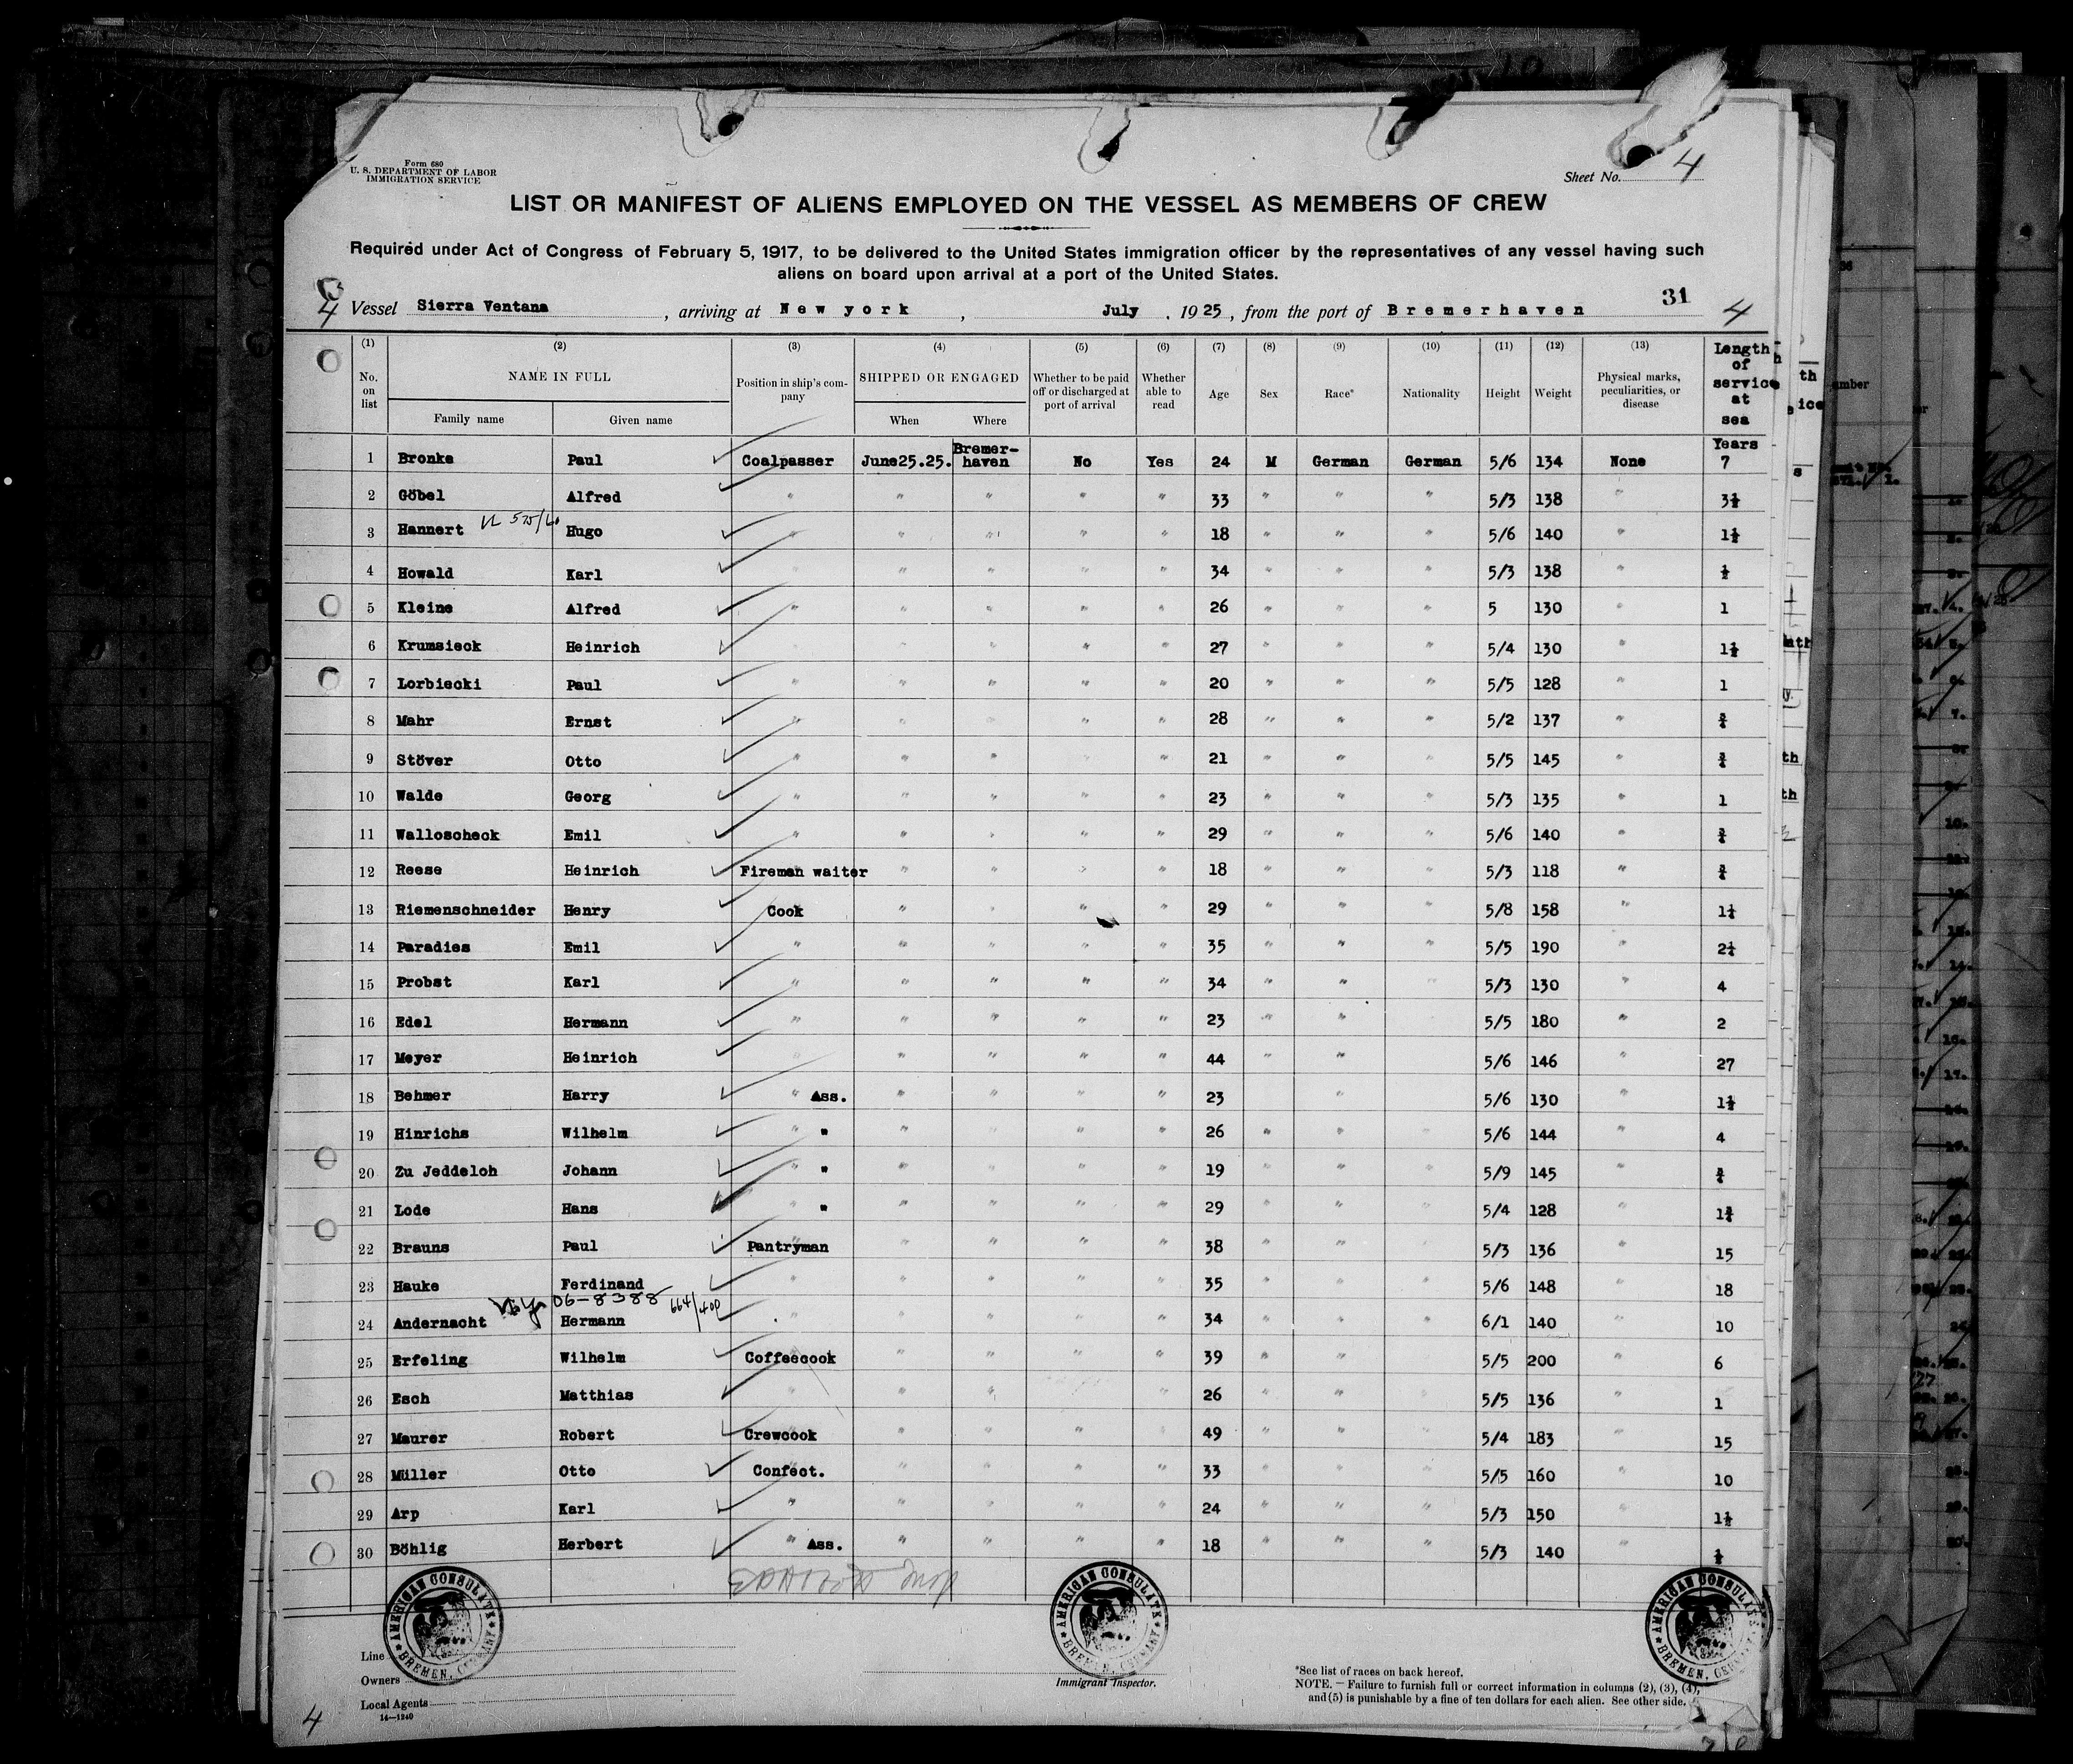 Form 680
U. S. DEPARTMENT OF LABOR
IMMIGRATION SERVICE
Sheet No. 4
LIST OR MANIFEST OF ALIENS EMPLOYED ON THE VESSEL AS MEMBERS OF CREW
Required under Act of Congress of February 5, 1917, to be delivered to the United States immigration officer by the representatives of any vessel having such
aliens on board upon arrival at a port of the United States.
31
4 Vessel Sierra Ventana, arriving at New york, July, 1925, from the port of Bremerhaven 4
(1) (2) (3) (4) (5) (6) (7) (8) (9) (10) (11) (12) (13)
No. on list NAME IN FULL Family name Given name Position in ship's company SHIPPED OR ENGAGED When Where Whether to be paid off or discharged at port of arrival Whether able to read Age Sex Race* Nationality Height Weight Physical marks, peculiarities, or disease Length of service at sea
Years
1 Bronke Paul Coalpasser June25.25. Bremer-haven No Yes 24 M German German 5/6 134 None 7
2 Göbel Alfred " " " " " 33 " " " 5/3 138 " 3½
3 Hannert Hugo " " " " " 18 " " " 5/6 140 "
4 Howald Karl " " " " " 34 " " " 5/3 138 "
5 Kleine Alfred " " " " " 26 " " " 5 130 " 1
6 Krumsieck Heinrich " " " " " 27 " " " 5/4 130 "
7 Lorbiecki Paul " " " " " 20 " " " 5/5 128 " 1
8 Mahr Ernst " " " " " 28 " " " 5/2 137 " ¾
9 Stöver Otto " " " " " 21 " " " 5/5 145 " ¾
10 Walde Georg " " " " " 23 " " " 5/3 135 " 1
11 Walloscheck Emil " " " " " 29 " " " 5/6 140 " ¾
12 Reese Heinrich Fireman waiter " " " " 18 " " " 5/3 118 " ¾
13 Riemenschneider Henry Cook " " " " 29 " " " 5/8 158 "
14 Paradies Emil " " " " " 35 " " " 5/5 190 "
15 Probst Karl " " " " " 34 " " " 5/3 130 " 4
16 Edel Hermann " " " " " 23 " " 5/5 180 " 2
17 Meyer Heinrich " " " " " 44 " " 5/6 146 " 27
18 Behmer Harry " Ass. " " " " 23 " 5/6 130 " 1½
19 Hinrichs Wilhelm " " " " " " 26 " " " 5/6 144 " 4
20 Zu Jeddeloh Johann " " " " " " 19 " " " 5/9 145 " ¾
21 Lode Hans " " " " " " 29 " " " 5/4 128 " 1¾
22 Brauns Paul Pantryman " " " " 38 " " " 5/3 136 " 15
23 Hauke Ferdinand " " " " " 35 " " " 5/6 148 " 18
06-8388 664/400
24 Andernacht Hermann " " " " " 34 " " " 6/1 140 " 10
25 Erfeling Wilhelm Coffeecook " " " " 39 " " " 5/5 200 " 6
26 Esch Matthias " " " " " 26 " " " 5/5 136 " 1
27 Maurer Robert Crewcook " " " " 49 " " " 5/4 183 " 15
28 Müller Otto Confect. " " " " 33 " " " 5/5 160 " 10
29 Arp Karl " " " " " 24 " " " 5/3 150 " 1½
30 Böhlig Herbert " Ass. " " " " 18 " " " 5/3 140 " ½
AMERICAN CONSULATE BREMEN, GERMANY
AMERICAN CONSULATE BREMEN, GERMANY
AMERICAN CONSULATE BREMEN, GERMANY
Line
Owners
Local Agents
14—1240
Immigrant Inspector.
*See list of races on back hereof.
NOTE. — Failure to furnish full or correct information in columns (2), (3), (4),
and (5) is punishable by a fine of ten dollars for each alien. See other side.
4